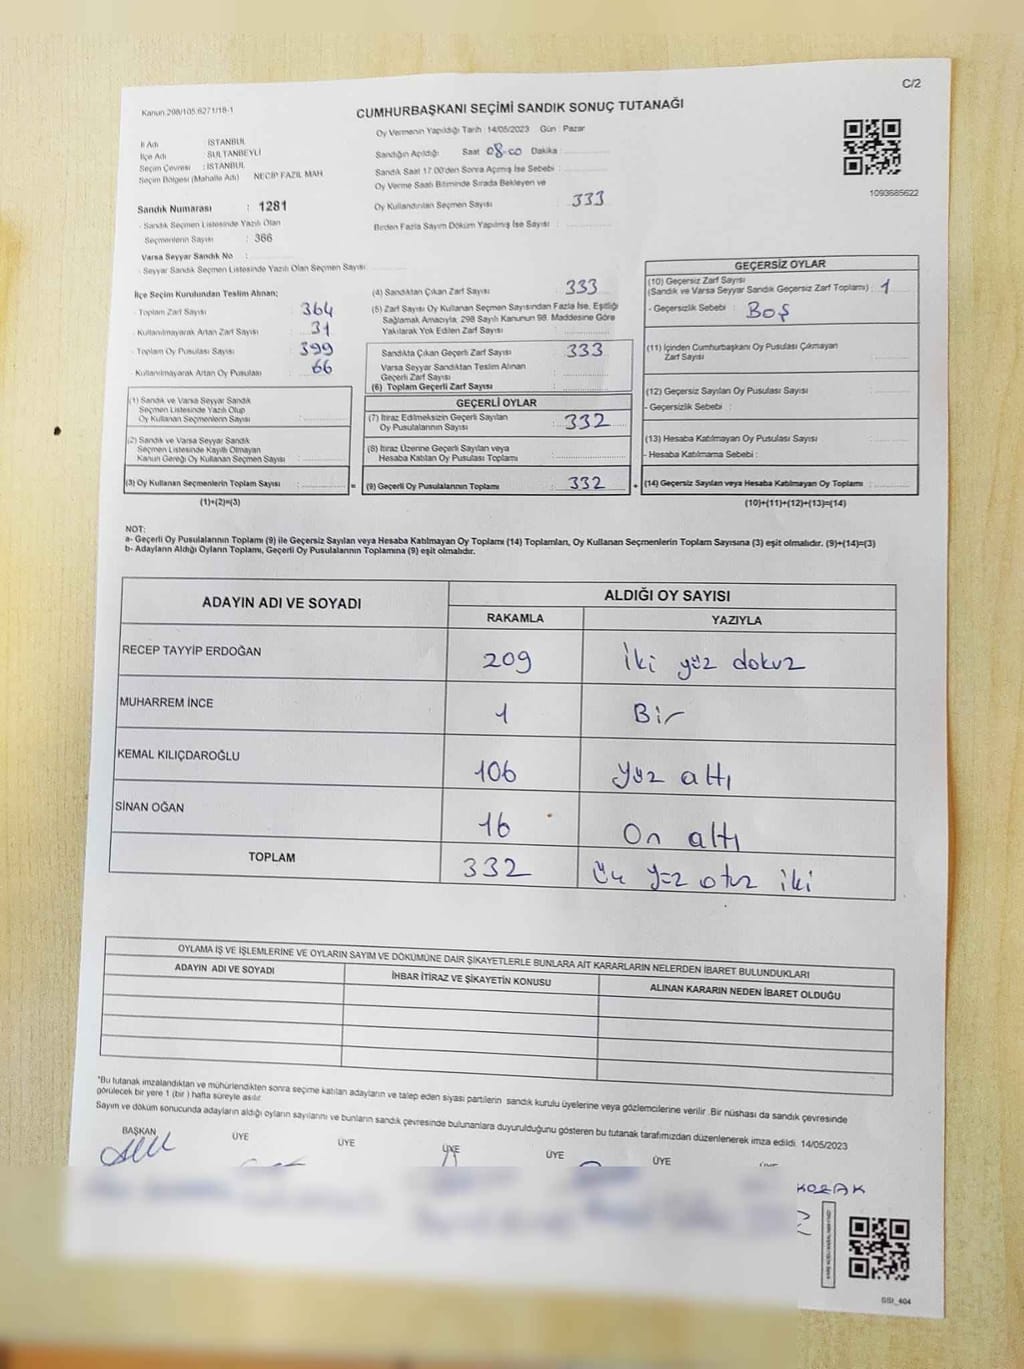 C/2
Kanun 298/105.6271/18-1
CUMHURBAŞKANI SEÇİMİ SANDIK SONUÇ TUTANAĞI
İl Adı İSTANBUL
İlçe Adı : SULTANBEYLİ
Seçim Çevresi : İSTANBUL
Seçim Bölgesi (Mahalle Adı) NECİP FAZIL MAH
Sandık Numarası : 1281
- Sandık Seçmen Listesinde Yazılı Olan
Seçmenlerin Sayısı : 366
Varsa Seyyar Sandık No :
- Seyyar Sandık Seçmen Listesinde Yazılı Olan Seçmen Sayısı
Oy Vermenin Yapıldığı Tarih : 14/05/2023 Gün : Pazar
Sandığın Açıldığı Saat 08-00 Dakika :
Sandık Saat 17.00'den Sonra Açımış İse Sebebi :
Oy Verme Saati Bitiminde Sırada Bekleyen ve
Oy Kullandırılan Seçmen Sayısı 333
Birden Fazla Sayım Döküm Yapılmış İse Sayısı :
1093685622
İlçe Seçim Kurulundan Teslim Alınan;
- Toplam Zarf Sayısı : 364
- Kullanılmayarak Artan Zarf Sayısı : 31
- Toplam Oy Pusulası Sayısı : 399
- Kullanılmayarak Artan Oy Pusulası : 66
(1) Sandık ve Varsa Seyyar Sandık
Seçmen Listesinde Yazılı Olup
Oy Kullanan Seçmenlerin Sayısı :
(2) Sandık ve Varsa Seyyar Sandık
Seçmen Listesinde Kayıtlı Olmayan
Kanun Gereği Oy Kullanan Seçmen Sayısı :
(3) Oy Kullanan Seçmenlerin Toplam Sayısı :
(1)+(2)=(3)
(4) Sandıktan Çıkan Zarf Sayısı : 333
(5) Zarf Sayısı Oy Kullanan Seçmen Sayısından Fazla İse, Eşitliği
Sağlamak Amacıyla, 298 Sayılı Kanunun 98. Maddesine Göre
Yakılarak Yok Edilen Zarf Sayısı :
Sandıkta Çıkan Geçerli Zarf Sayısı : 333
Varsa Seyyar Sandıktan Teslim Alınan
Geçerli Zarf Sayısı :
(6) Toplam Geçerli Zarf Sayısı :
GEÇERLİ OYLAR
(7) İtiraz Edilmeksizin Geçerli Sayılan
Oy Pusulasının Sayısı : 332
(8) İtiraz Üzerine Geçerli Sayılan veya
Hesaba Katılan Oy Pusulası Toplamı :
= (9) Geçerli Oy Pusulalarının Toplamı : 332 +
GEÇERSİZ OYLAR
(10) Geçersiz Zarf Sayısı
(Sandık ve Varsa Seyyar Sandık Geçersiz Zarf Toplamı) : 1
- Geçersizlik Sebebi : Boş
(11) İçinden Cumhurbaşkanı Oy Pusulası Çıkmayan
Zarf Sayısı
(12) Geçersiz Sayılan Oy Pusulası Sayısı :
- Geçersizlik Sebebi :
(13) Hesaba Katılmayan Oy Pusulası Sayısı :
- Hesaba Katılmama Sebebi :
(14) Geçersiz Sayılan veya Hesaba Katılmayan Oy Toplamı :
(10)+(11)+(12)+(13)=(14)
NOT:
a- Geçerli Oy Pusulalarının Toplamı (9) ile Geçersiz Sayılan veya Hesaba Katılmayan Oy Toplamı (14) Toplamları, Oy Kullanan Seçmenlerin Toplam Sayısına (3) eşit olmalıdır. (9)+(14)=(3)
b- Adayların Aldığı Oyların Toplamı, Geçerli Oy Pusulalarının Toplamına (9) eşit olmalıdır.
ADAYIN ADI VE SOYADI ALDIĞI OY SAYISI
RAKAMLA YAZIYLA
RECEP TAYYİP ERDOĞAN 209 İki yüz dokuz
MUHARREM İNCE 1 Bir
KEMAL KILIÇDAROĞLU 106 Yüz altı
SİNAN OĞAN 16 On altı
TOPLAM 332 Üç yüz otuz iki
OYLAMA İŞ VE İŞLEMLERİNE VE OYLARIN SAYIM VE DÖKÜMÜNE DAİR ŞİKAYETLERLE BUNLARA AİT KARARLARIN NELERDEN İBARET BULUNDUKLARI
ADAYIN ADI VE SOYADI İHBAR İTİRAZ VE ŞİKAYETİN KONUSU ALINAN KARARIN NEDEN İBARET OLDUĞU
*Bu tutanak imzalandıktan ve mühürlendikten sonra seçime katılan adayların ve talep eden siyasi partilerin sandık kurulu üyelerine veya gözlemcilerine verilir. Bir nüshası da sandık çevresinde
görülecek bir yere 1 (bir) hafta süreyle asılır.
Sayım ve döküm sonucunda adayların aldığı oyların sayılarını ve bunların sandık çevresinde bulunanlara duyurulduğunu gösteren bu tutanak tarafımızdan düzenlenerek imza edildi. 14/05/2023
BAŞKAN ÜYE ÜYE ÜYE ÜYE ÜYE
KOZAK